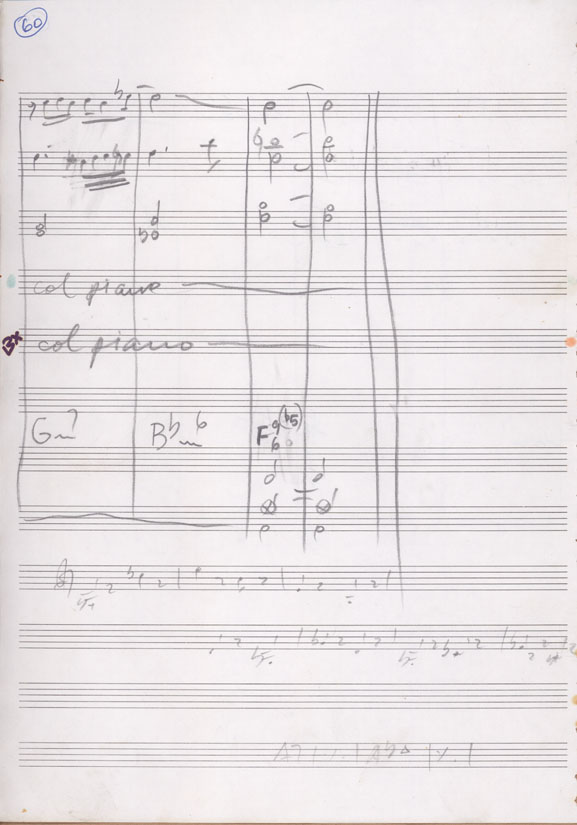 60
col piano
3x col piano
Gm7 B♭m6 F 9 6 (♭5)